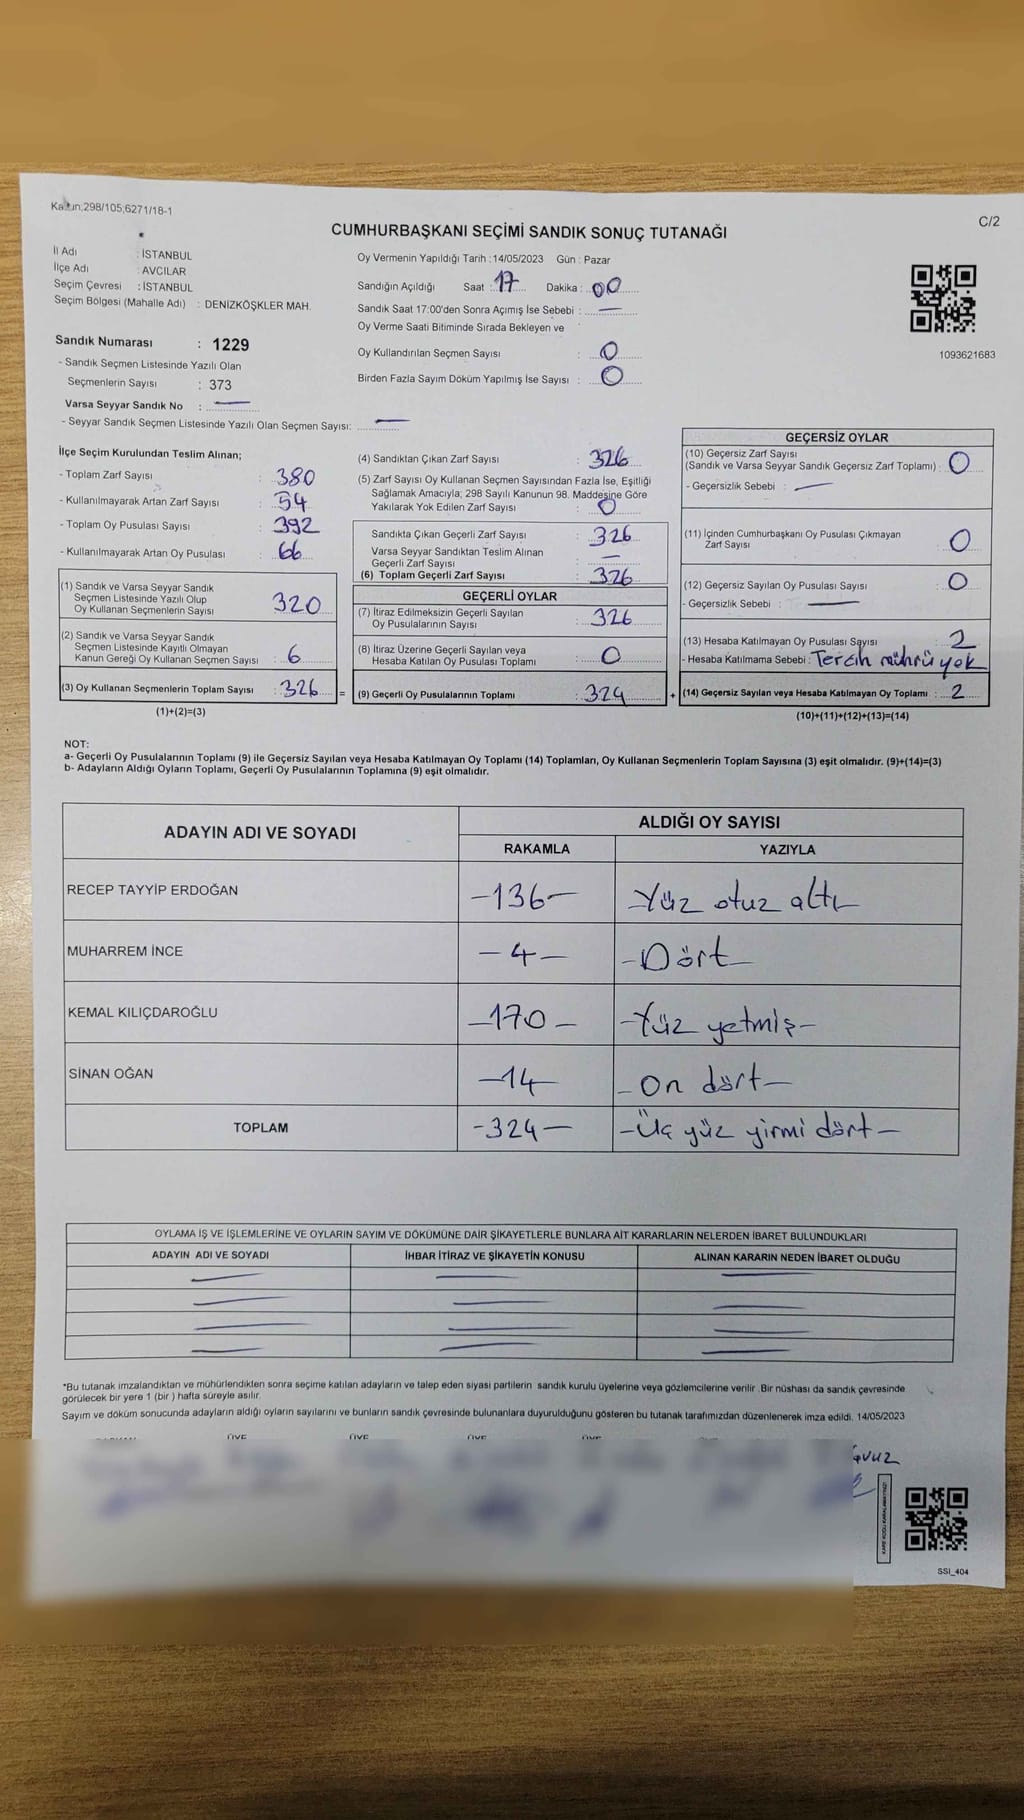 Kanun;298/105;6271/18-1
C/2
CUMHURBAŞKANI SEÇİMİ SANDIK SONUÇ TUTANAĞI
İl Adı : İSTANBUL
İlçe Adı : AVCILAR
Seçim Çevresi : İSTANBUL
Seçim Bölgesi (Mahalle Adı) : DENİZKÖŞKLER MAH.
Sandık Numarası : 1229
- Sandık Seçmen Listesinde Yazılı Olan
Seçmenlerin Sayısı : 373
Varsa Seyyar Sandık No :
- Seyyar Sandık Seçmen Listesinde Yazılı Olan Seçmen Sayısı:
Oy Vermenin Yapıldığı Tarih :14/05/2023 Gün : Pazar
Sandığın Açıldığı Saat : 17 Dakika : 00
Sandık Saat 17:00'den Sonra Açımış İse Sebebi :
Oy Verme Saati Bitiminde Sırada Bekleyen ve
Oy Kullandırılan Seçmen Sayısı : 0
Birden Fazla Sayım Döküm Yapılmış İse Sayısı : 0
1093621683
İlçe Seçim Kurulundan Teslim Alınan;
- Toplam Zarf Sayısı : 380
- Kullanılmayarak Artan Zarf Sayısı : 54
- Toplam Oy Pusulası Sayısı : 392
- Kullanılmayarak Artan Oy Pusulası : 66
(1) Sandık ve Varsa Seyyar Sandık
Seçmen Listesinde Yazılı Olup
Oy Kullanan Seçmenlerin Sayısı 320
(2) Sandık ve Varsa Seyyar Sandık
Seçmen Listesinde Kayıtlı Olmayan
Kanun Gereği Oy Kullanan Seçmen Sayısı : 6
(3) Oy Kullanan Seçmenlerin Toplam Sayısı : 326 =
(1)+(2)=(3)
(4) Sandıktan Çıkan Zarf Sayısı : 326
(5) Zarf Sayısı Oy Kullanan Seçmen Sayısından Fazla İse, Eşitliği
Sağlamak Amacıyla; 298 Sayılı Kanunun 98. Maddesine Göre
Yakılarak Yok Edilen Zarf Sayısı : 0
Sandıkta Çıkan Geçerli Zarf Sayısı : 326
Varsa Seyyar Sandıktan Teslim Alınan
Geçerli Zarf Sayısı :
(6) Toplam Geçerli Zarf Sayısı : 326
GEÇERLİ OYLAR
(7) İtiraz Edilmeksizin Geçerli Sayılan
Oy Pusulalarının Sayısı : 326
(8) İtiraz Üzerine Geçerli Sayılan veya
Hesaba Katılan Oy Pusulası Toplamı : 0
(9) Geçerli Oy Pusulalarının Toplamı : 324 +
GEÇERSİZ OYLAR
(10) Geçersiz Zarf Sayısı
(Sandık ve Varsa Seyyar Sandık Geçersiz Zarf Toplamı) : 0
- Geçersizlik Sebebi :
(11) İçinden Cumhurbaşkanı Oy Pusulası Çıkmayan
Zarf Sayısı : 0
(12) Geçersiz Sayılan Oy Pusulası Sayısı : 0
- Geçersizlik Sebebi :
(13) Hesaba Katılmayan Oy Pusulası Sayısı : 2
- Hesaba Katılmama Sebebi : Tercih mührü yok
(14) Geçersiz Sayılan veya Hesaba Katılmayan Oy Toplamı : 2
(10)+(11)+(12)+(13)=(14)
NOT:
a- Geçerli Oy Pusulalarının Toplamı (9) ile Geçersiz Sayılan veya Hesaba Katılmayan Oy Toplamı (14) Toplamları, Oy Kullanan Seçmenlerin Toplam Sayısına (3) eşit olmalıdır. (9)+(14)=(3)
b- Adayların Aldığı Oyların Toplamı, Geçerli Oy Pusulalarının Toplamına (9) eşit olmalıdır.
ADAYIN ADI VE SOYADI ALDIĞI OY SAYISI
RAKAMLA YAZIYLA
RECEP TAYYİP ERDOĞAN -136- -Yüz otuz altı-
MUHARREM İNCE -4- -Dört-
KEMAL KILIÇDAROĞLU -170- -Yüz yetmiş-
SİNAN OĞAN -14- -On dört-
TOPLAM -324- -Üç yüz yirmi dört-
OYLAMA İŞ VE İŞLEMLERİNE VE OYLARIN SAYIM VE DÖKÜMÜNE DAİR ŞİKAYETLERLE BUNLARA AİT KARARLARIN NELERDEN İBARET BULUNDUKLARI
ADAYIN ADI VE SOYADI İHBAR İTİRAZ VE ŞİKAYETİN KONUSU ALINAN KARARIN NEDEN İBARET OLDUĞU
*Bu tutanak imzalandıktan ve mühürlendikten sonra seçime katılan adayların ve talep eden siyasi partilerin sandık kurulu üyelerine veya gözlemcilerine verilir .Bir nüshası da sandık çevresinde
görülecek bir yere 1 (bir ) hafta süreyle asılır.
Sayım ve döküm sonucunda adayların aldığı oyların sayılarını ve bunların sandık çevresinde bulunanlara duyurulduğunu gösteren bu tutanak tarafımızdan düzenlenerek imza edildi. 14/05/2023
ÜYE ÜYE ÜYE ÜYE
SSI_404